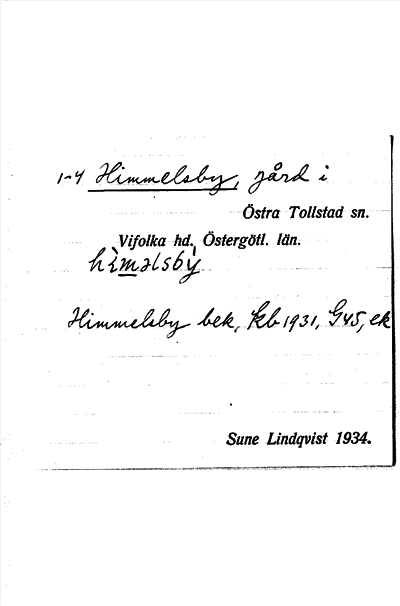 1-4 Himmelsby, gård i
Östra Tollstad sn.
Vifolka hd., Östergötl. län.
hìməlsbỳ
Himmelsby bek, kb 1931, G45, ek
Sune Lindqvist 1934.